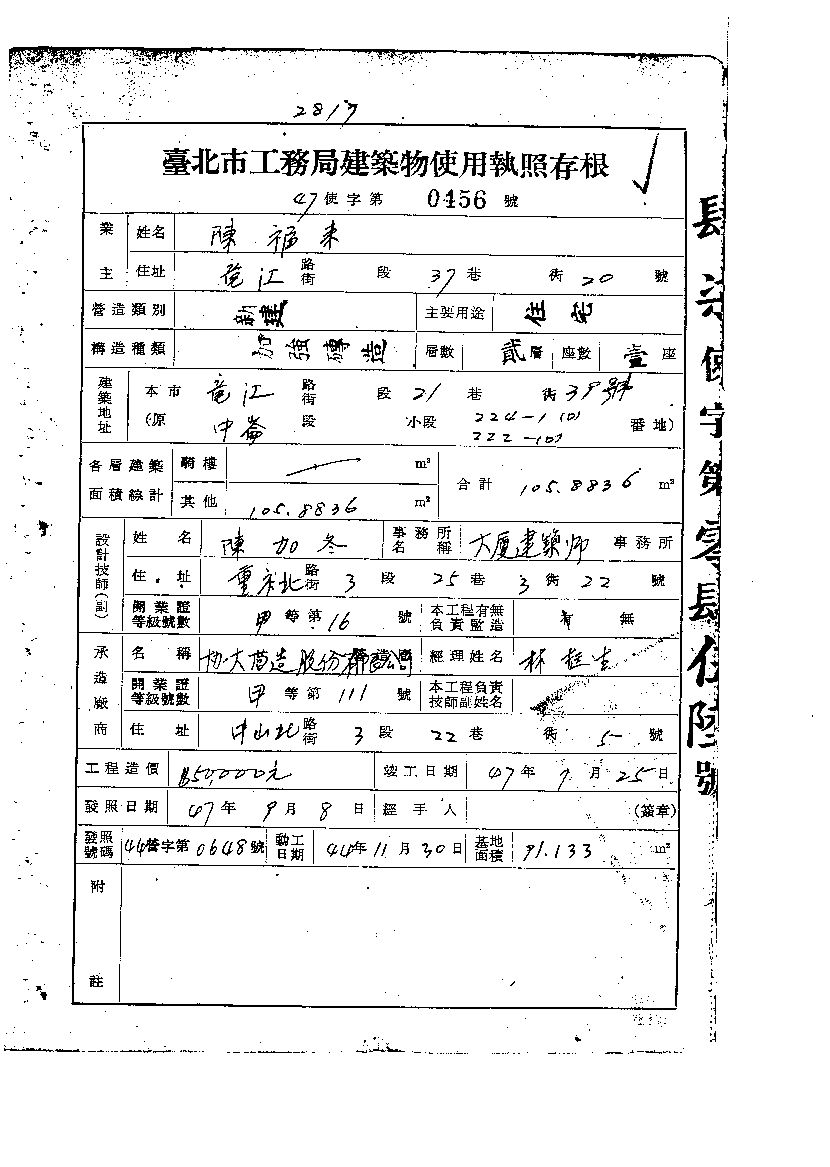 2817
臺北市工務局建築物使用執照存根
47使字第 0456 號
業主 姓名 陳福来
住址 竜江 路街 段 37巷 街20 號
營造類別 新建 主要用途 住宅
構造種類 加強磚造 層數 貳層 座數 壹座
建築地址 本市 竜江 路街 段 21 巷 街 39號
(原 中崙 段 小段 224-1(0) 222-(0) 番地)
各層建築面積線計 騎樓 m² 合計 105.8836 m²
其他 105.8836 m²
設計技師(副) 姓名 陳加冬 事務所名稱 大廈建築师 事務所
住址 重末北 路街 3 段 25 巷 3 街 22 號
開業證等級號數 甲等第16 號 本工程有無負責監造 有 無
承造廠商 名稱 協大营造股份有限公司 經理姓名 林
開業證等級號數 甲等第 111 號 本工程負責技師副姓名
住址 中山北 路街 3 段 22 巷 街 5 號
工程造價 850,000元 竣工日期 47年 9 月 25日
發照日期 47年 9 月 8 日 經手人 (簽章)
發照號碼 44營字第0648號 動工日期 44年11月30日 基地面積 91.133 m²
附註
肆柒使字第零肆伍陸號